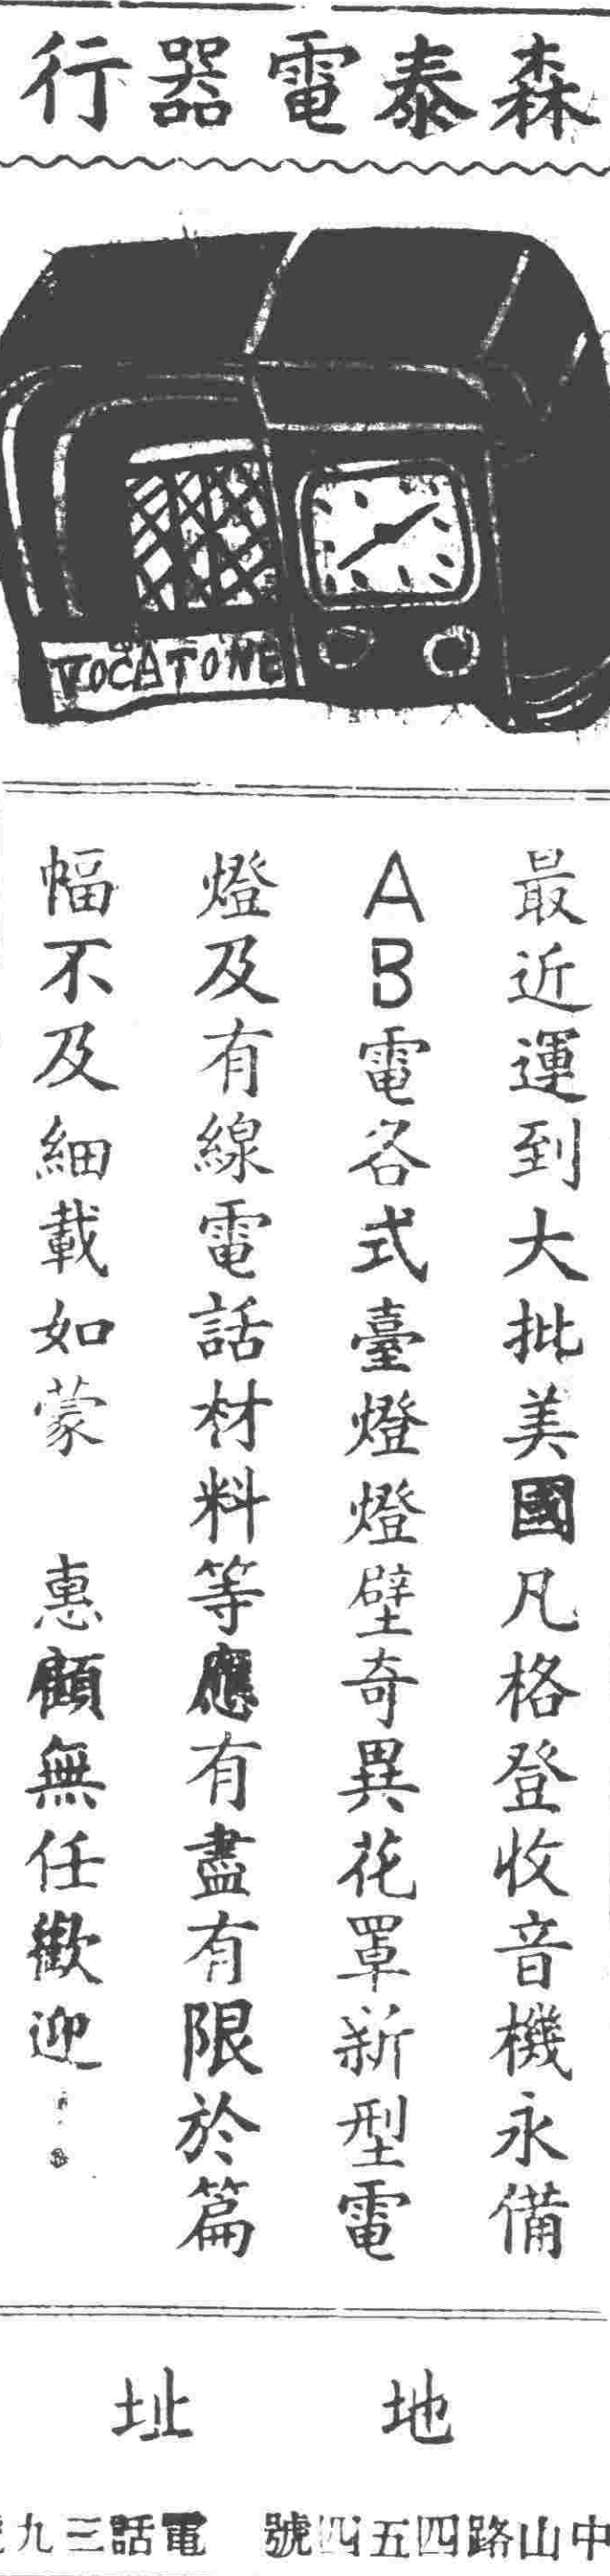 森泰電器行
VOCATONE
最近運到大批美國凡格登收音機永備
AB電各式臺燈燈壁奇異花罩新型電
燈及有線電話材料等應有盡有限於篇
幅不及細載如蒙　惠顧無任歡迎
地址
中山路四五四號　電話三九